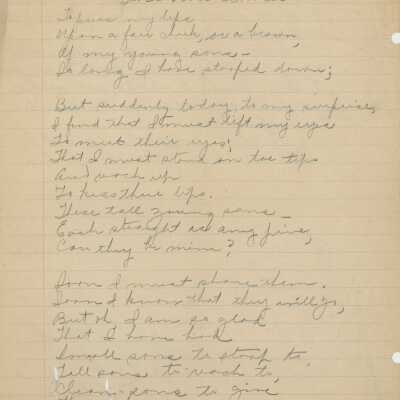 To press my lips
Upon a fair cheek, or a brown,
Of my young sons —
So long I have stooped down;
But suddenly today, to my surprise,
I find that I must lift my eyes
To meet their eyes;
That I must stand on toe tips
And reach up
To kiss their lips.
These tall young sons —
Each straight as any pine,
Can they be mine?
Soon I must share them.
Soon I know that they will go,
But oh I am so glad
That I have had
Small sons to stoop to,
Tall sons to reach to,
Clean sons to give